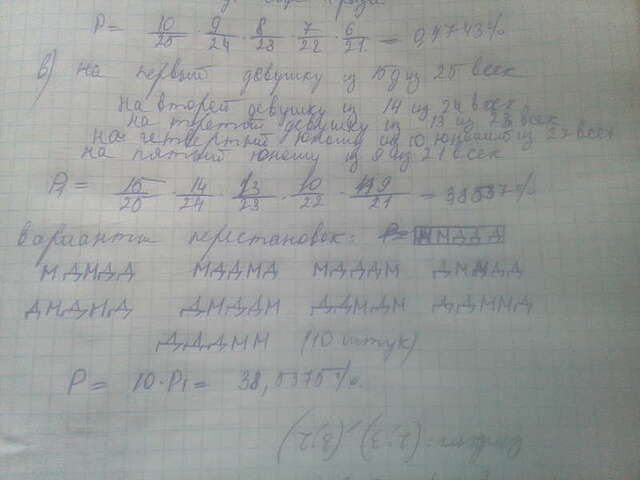 P = 10/25 · 9/24 · 8/23 · 7/22 · 6/21 = 0,4743%
в) на первый девушку из 15д из 25 всех
на второй девушку из 14 из 24 всех
на третий девушку из 13 из 23 всех
на четвертый юношу из 10 юношей из 22 всех
на пятый юношу из 9 из 21 всех
P₁ = 15/25 · 14/24 · 13/23 · 10/22 · 9/21 = 3,8537%
Варианты перестановок: ММДДД
МДМДД МДДМД МДДДМ ДММДД
ДМДМД ДМДДМ ДДМДМ ДДММД
ДДДММ (10 штук)
P = 10·P₁ = 38,5375%.
(2;3), (3;2)